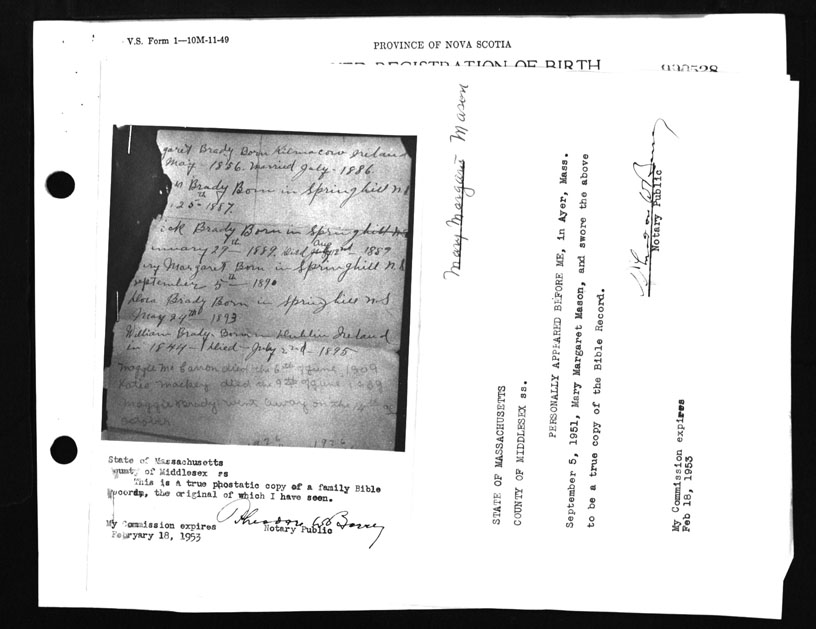 V.S. Form 1—10M-11-49
PROVINCE OF NOVA SCOTIA
REGISTRATION OF BIRTH
garet Brady Born Kilmacow Ireland
May - 1856. Married July - 1886
Brady Born in Springhill N.S
25th 1887.
ick Brady Born in Springhill N.S
nuary 27th 1889. Died Aug 2nd - 1889
ry Margaret Born in Springhill N.S
eptember 5th - 1890
Brady Born in Springhill N.S
May 24th 1893
William Brady Born in Dublin Ireland
in 1844 - Died July 2nd - 1895
died the 6th of June 1909
Katie Mackey died the 9th of June 1909
Maggie Brady went away on the 14th of
State of Massachusetts
ounty of Middlesex ss
This is a true phostatic copy of a family Bible
Records, the original of which I have seen.
My Commission expires
Feoryary 18, 1953
Theodore W Barry
Notary Public
Mary Margaret Mason
STATE OF MASSACHUSETTS
COUNTY OF MIDDLESEX ss.
PERSONALLY APPEARED BEFORE ME, in Ayer, Mass.
September 5, 1951, Mary Margaret Mason, and swore the above
to be a true copy of the Bible Record.
Theodore W Barry
Notary Public
My Commission expires
Feb 18, 1953